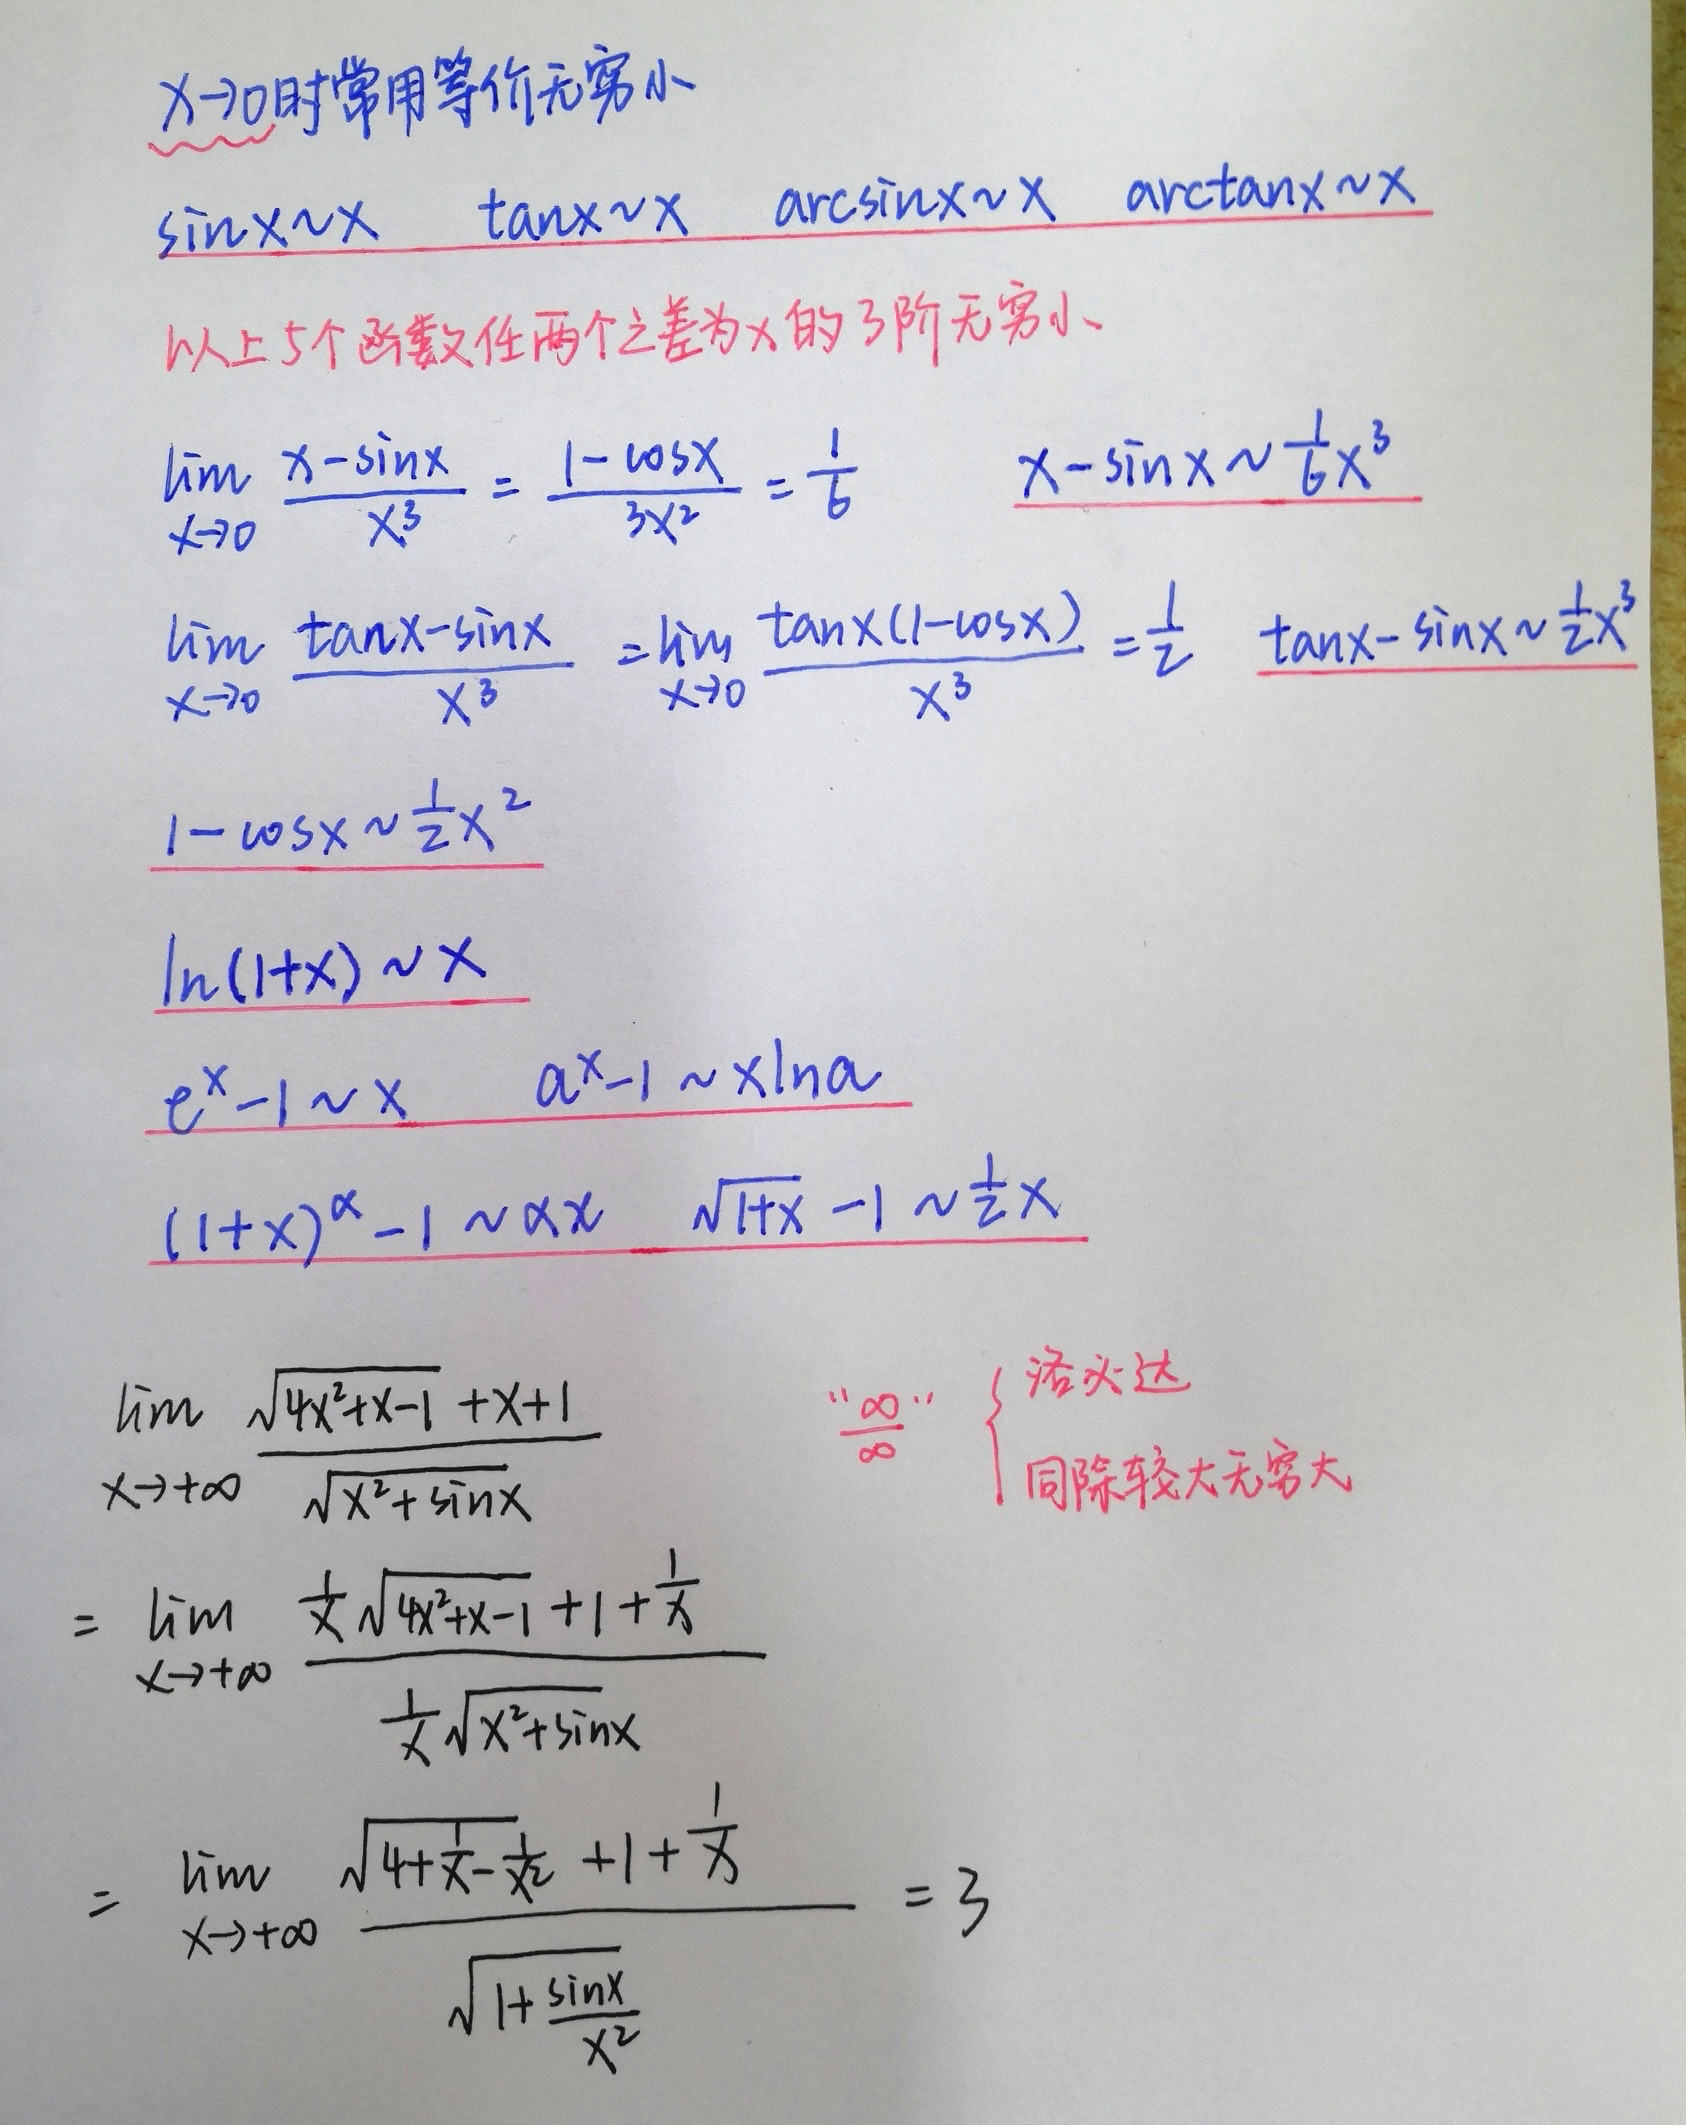 x→0时常用等价无穷小
sinx~x tanx~x arcsinx~x arctanx~x
以上5个函数任两个之差为x的3阶无穷小
lim x→0 (x-sinx)/x³ = (1-cosx)/3x² = 1/6 x-sinx~1/6x³
lim x→0 (tanx-sinx)/x³ = lim x→0 tanx(1-cosx)/x³ = 1/2 tanx-sinx~1/2x³
1-cosx~1/2x²
ln(1+x)~x
eˣ-1~x aˣ-1~xlna
(1+x)^α-1~αx √(1+x)-1~1/2x
lim x→+∞ (√(4x²+x-1)+x+1)/√(x²+sinx) "∞/∞" { 洛必达
同除较大无穷大
= lim x→+∞ (1/x√(4x²+x-1)+1+1/x)/(1/x√(x²+sinx))
= lim x→+∞ (√(4+1/x-1/x²)+1+1/x)/√(1+sinx/x²) = 3